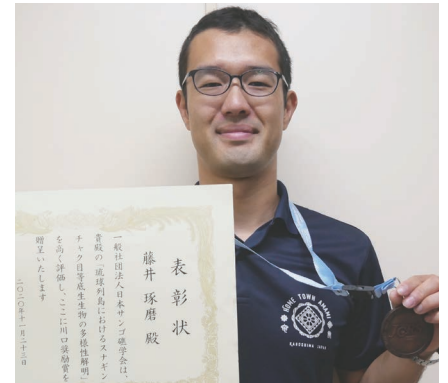 表彰状
藤井 琢磨 殿
一般社団法人日本サンゴ礁学会は、
貴殿の「琉球列島におけるスナギン
チャク目等底生生物の多様性解明」
を高く評価し、ここに川口奨励賞を
贈呈いたします
二〇二〇年十一月二十三日
HOME TOWN AMAMI
KAGOSHIMA JAPAN